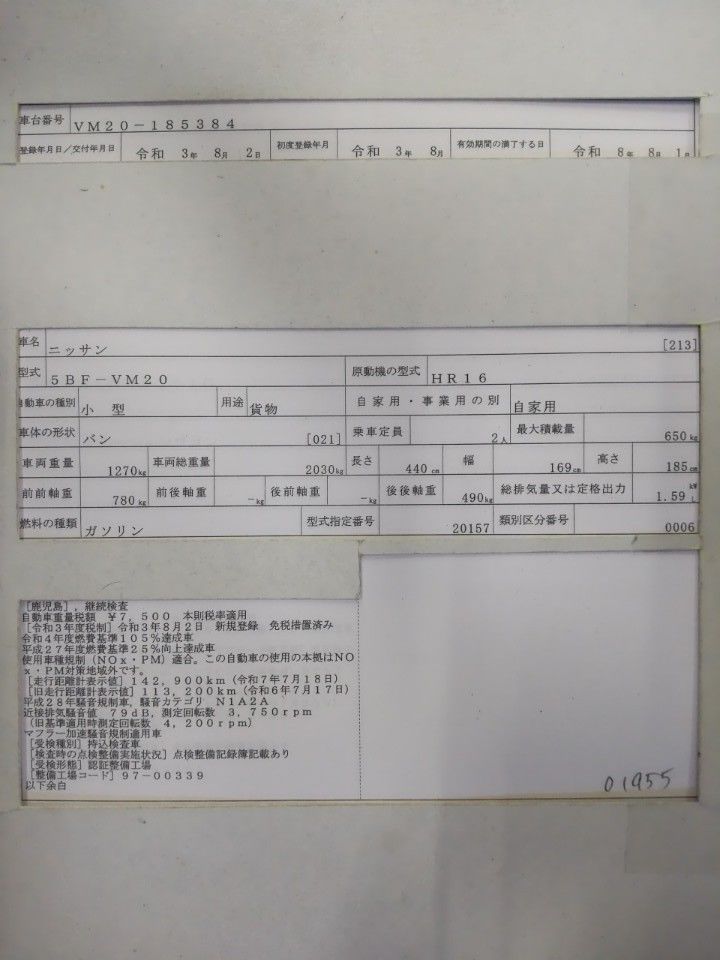 車台番号 VM20-185384
登録年月日/交付年月日 令和 3年 8月 2日 初度登録年月 令和 3年 8月 有効期間の満了する日 令和 8年 8月 1日
車名 ニッサン [213]
型式 5BF-VM20 原動機の型式 HR16
自動車の種別 小型 用途 貨物 自家用・事業用の別 自家用
車体の形状 バン [021] 乗車定員 2人 最大積載量 650kg
車両重量 1270kg 車両総重量 2030kg 長さ 440cm 幅 169cm 高さ 185cm
前前軸重 780kg 前後軸重 -kg 後前軸重 -kg 後後軸重 490kg 総排気量又は定格出力 1.59 kW L
燃料の種類 ガソリン 型式指定番号 20157 類別区分番号 0006
[鹿児島],継続検査
自動車重量税額 ¥7,500 本則税率適用
[令和3年度税制]令和3年8月2日 新規登録 免税措置済み
令和4年度燃費基準105%達成車
平成27年度燃費基準25%向上達成車
使用車種規制(NOx・PM)適合。この自動車の使用の本拠はNO
x・PM対策地域外です。
[走行距離計表示値]142,900km(令和7年7月18日)
[旧走行距離計表示値]113,200km(令和6年7月17日)
平成28年騒音規制車,騒音カテゴリ N1A2A
近接排気騒音値 79dB,測定回転数 3,750rpm
(旧基準適用時測定回転数 4,200rpm)
マフラー加速騒音規制適用車
[受検種別]持込検査車
[検査時の点検整備実施状況]点検整備記録簿記載あり
[受検形態]認証整備工場
[整備工場コード]97-00339
以下余白
01955